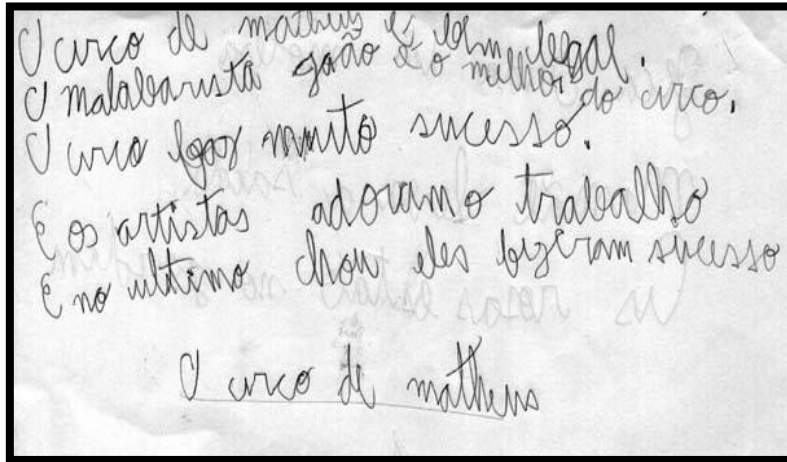 O circo de matheus é bem legal.
O malabarista goão é o melhor do circo.
O circo faz muito sucesso.
E os artistas adoramo trabalho
E no ultimo chou eles fizeram sucesso
O circo de matheus